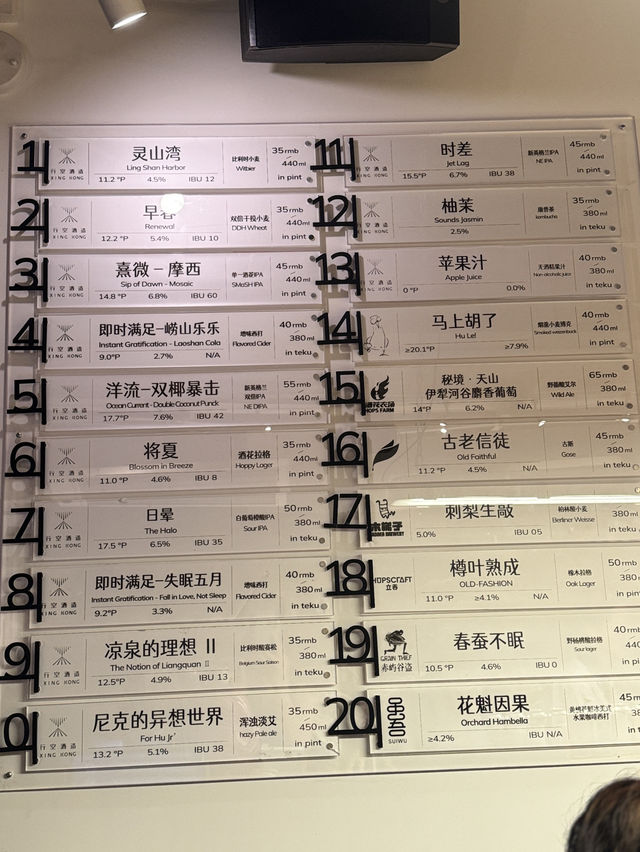 1
行空酒造
XING KONG
灵山湾
Ling Shan Harbor
11.2 °P 4.5% IBU 12
比利时小麦
Witbier
35rmb
440ml
in pint
2
行空酒造
XING KONG
早春
Renewal
12.2 °P 5.4% IBU 10
双倍干投小麦
DDH Wheat
35rmb
440ml
in pint
3
行空酒造
XING KONG
熹微-摩西
Sip of Dawn - Mosaic
14.8 °P 6.8% IBU 60
单一酒花IPA
SMaSH IPA
45rmb
440ml
in pint
4
行空酒造
XING KONG
即时满足-崂山乐乐
Instant Gratification - Laoshan Cola
9.0°P 2.7% N/A
增味西打
Flavored Cider
40rmb
380ml
in teku
5
行空酒造
XING KONG
洋流-双椰暴击
Ocean Current - Double Coconut Punck
17.7°P 7.6% IBU 42
新英格兰
双倍IPA
NE DIPA
55rmb
440ml
in pint
6
行空酒造
XING KONG
将夏
Blossom in Breeze
11.0 °P 4.6% IBU 8
酒花拉格
Hoppy Lager
35rmb
440ml
in pint
7
行空酒造
XING KONG
日晕
The Halo
17.5 °P 6.5% IBU 35
白葡萄酸IPA
Sour IPA
50rmb
380ml
in teku
8
行空酒造
XING KONG
即时满足-失眠五月
Instant Gratification - Fall in Love, Not Sleep
9.2°P 3.3% N/A
增味西打
Flavored Cider
40rmb
380ml
in teku
9
行空酒造
XING KONG
凉泉的理想 II
The Notion of Liangquan II
12.5°P 4.9% IBU 13
比利时酸赛松
Belgium Sour Saison
35rmb
380ml
in teku
0
行空酒造
XING KONG
尼克的异想世界
For Hu Jr'
13.2 °P 5.1% IBU 38
浑浊淡艾
hazy Pale ale
35rmb
450ml
in pint
11
行空酒造
XING KONG
时差
Jet Lag
15.5°P 6.7% IBU 38
新英格兰IPA
NE IPA
45rmb
440ml
in pint
12
行空酒造
XING KONG
柚茉
Sounds Jasmin
2.5%
康普茶
kombucha
35rmb
380ml
in teku
13
行空酒造
XING KONG
苹果汁
Apple Juice
0 °P 0.0%
无酒精果汁
Non-alcoholic juice
40rmb
380ml
in teku
14
马上胡了
Hu Le!
≥20.1°P ≥7.9%
烟熏小麦博克
Smoked weizenbock
40rmb
440ml
in pint
15
HOPS FARM
秘境·天山
伊犁河谷麝香葡萄
14°P 6.2% N/A
野菌酸艾尔
Wild Ale
65rmb
380ml
in teku
16
古老信徒
Old Faithful
11.2 °P 4.5% N/A
古斯
Gose
45rmb
380ml
in teku
17
刺梨生敲
5.0% IBU 05
柏林酸小麦
Berliner Weisse
380ml
in teku
18
HOPSCRAFT
立春
樽叶熟成
OLD-FASHION
11.0 °P ≥4.1% N/A
橡木拉格
Oak Lager
50rmb
380ml
in teku
19
GRAIN THIEF
赤屿谷盗
春蚕不眠
10.5 °P 4.6% IBU 0
Sour lager
40rmb
440
in
20
SUIWU
花魁因果
Orchard Hambella
≥4.2% IBU N/A
水果咖啡西打
45rm
380
in t